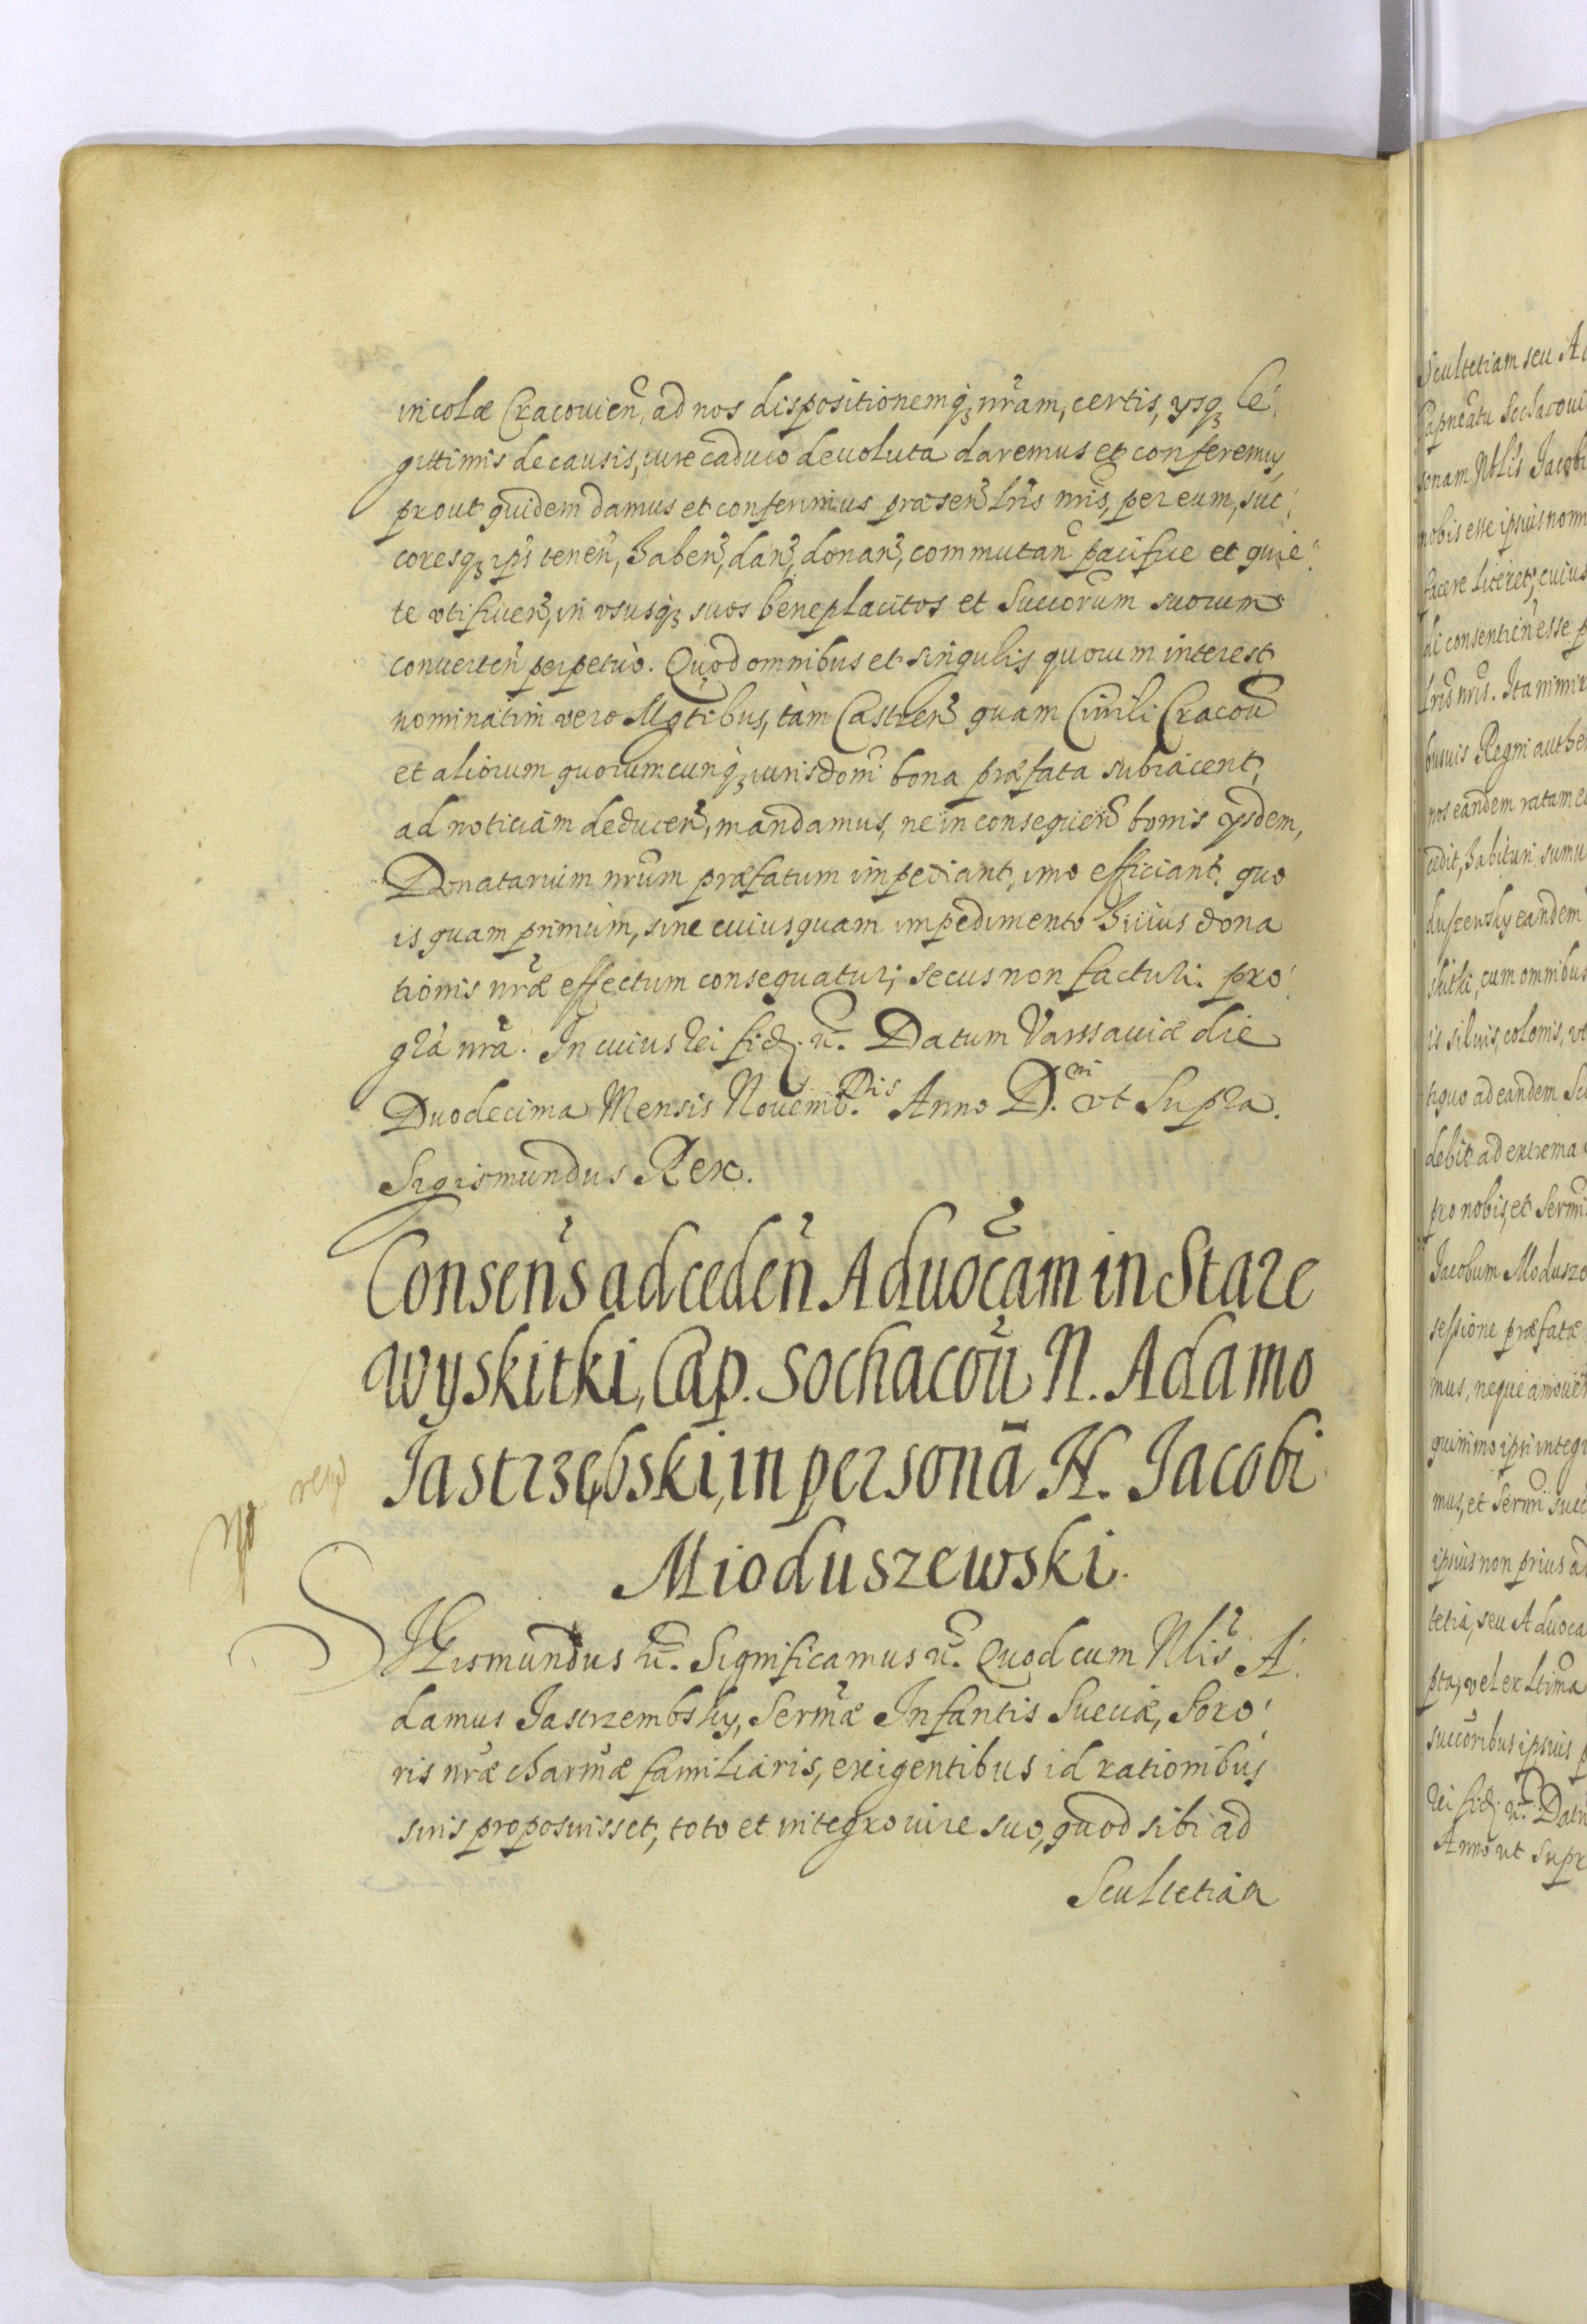 incolæ Cracouien̄, ad nos dispositionemq₃ nr̄am, certis, ysq₃ le:
gittimis de causis, iure caduco deuoluta daremus et conferemus,
prout quidem damus et conferimus præsen̄ lr̄is nr̄is, per eum, suc:
coresq₃ ip̄s tenen̄, haben̄, dan̄, donan̄, commutan̄ pacifice et quie:
te vtifruen̄, in vsusq₃ suos beneplacitos et Succorum suorum
conuerten̄ perpetuò. Quod omnibus et singulis quorum interest,
nominatim vero Mgtibus, tàm Castren̄ quam Ciuili Cracou̅
et aliorum quorumcunq₃ iurisdoni bona præfata subiacent,
ad noticiam deducen̄, mandamus, ne in consequen̄ bonis ysdem,
Donatarium nr̄um præfatum impediant, imo efficiant, quo
is quam primùm, sine cuiusquam impedimento huius dona
tionis nr̄æ effectum consequatur; secus non facturi. pro:
gr̄a nr̄a. In cuius rei fid. &̄. Datum Varssauiæ die
Duodecima Mensis Nouemb.ris Anno D.ni vt Supra.
Sigismundus Rex.
Consen̄s ad ceden̄ Aduoc̄am in Stare
Wyskitki, Cap. Sochacou̅ N. Adamo
Jastrzębski, in personā N. Jacobi
Mioduszewski.
SIGismundus &̄. Significamus &̄. Quod cum Nb̄lis A:
damus Jastrzembsky, Serm̄æ Infantis Sueciæ, Soro:
ris nr̄æ charm̄æ familiaris, exigentibus id rationibus
suis proposuisset, toto et integro iure suo, quod sibi ad
Scultetiam
Scultetiam seu Ad
Capneatu Sochacoui
sonam Nb̄lis Jacobi
nobis esse ipsius nom
facere liceret; cuius
di consentien̄ esse p
lr̄is nr̄is. Ita nimir
busuis Regni authe
nos eandem ratam e
cedit, habituri sumu
duszewsky eandem
skitki, cum omnibus
is siluis, colonis, vt
tiquo ad eandem Scu
debit ad extrema
pro nobis, et Serm̄i
Jacobum Moduszew
sessione præfatæ
mus, neque amouen̄
quinimo ipsi integr
mus, et Serm̄i succ
ipsius non prius ad
tetiā, seu Aduoca
pta, vel ex ltima
succoribus ipsius p
rei fid. &̄. Datu
Anno vt Supr